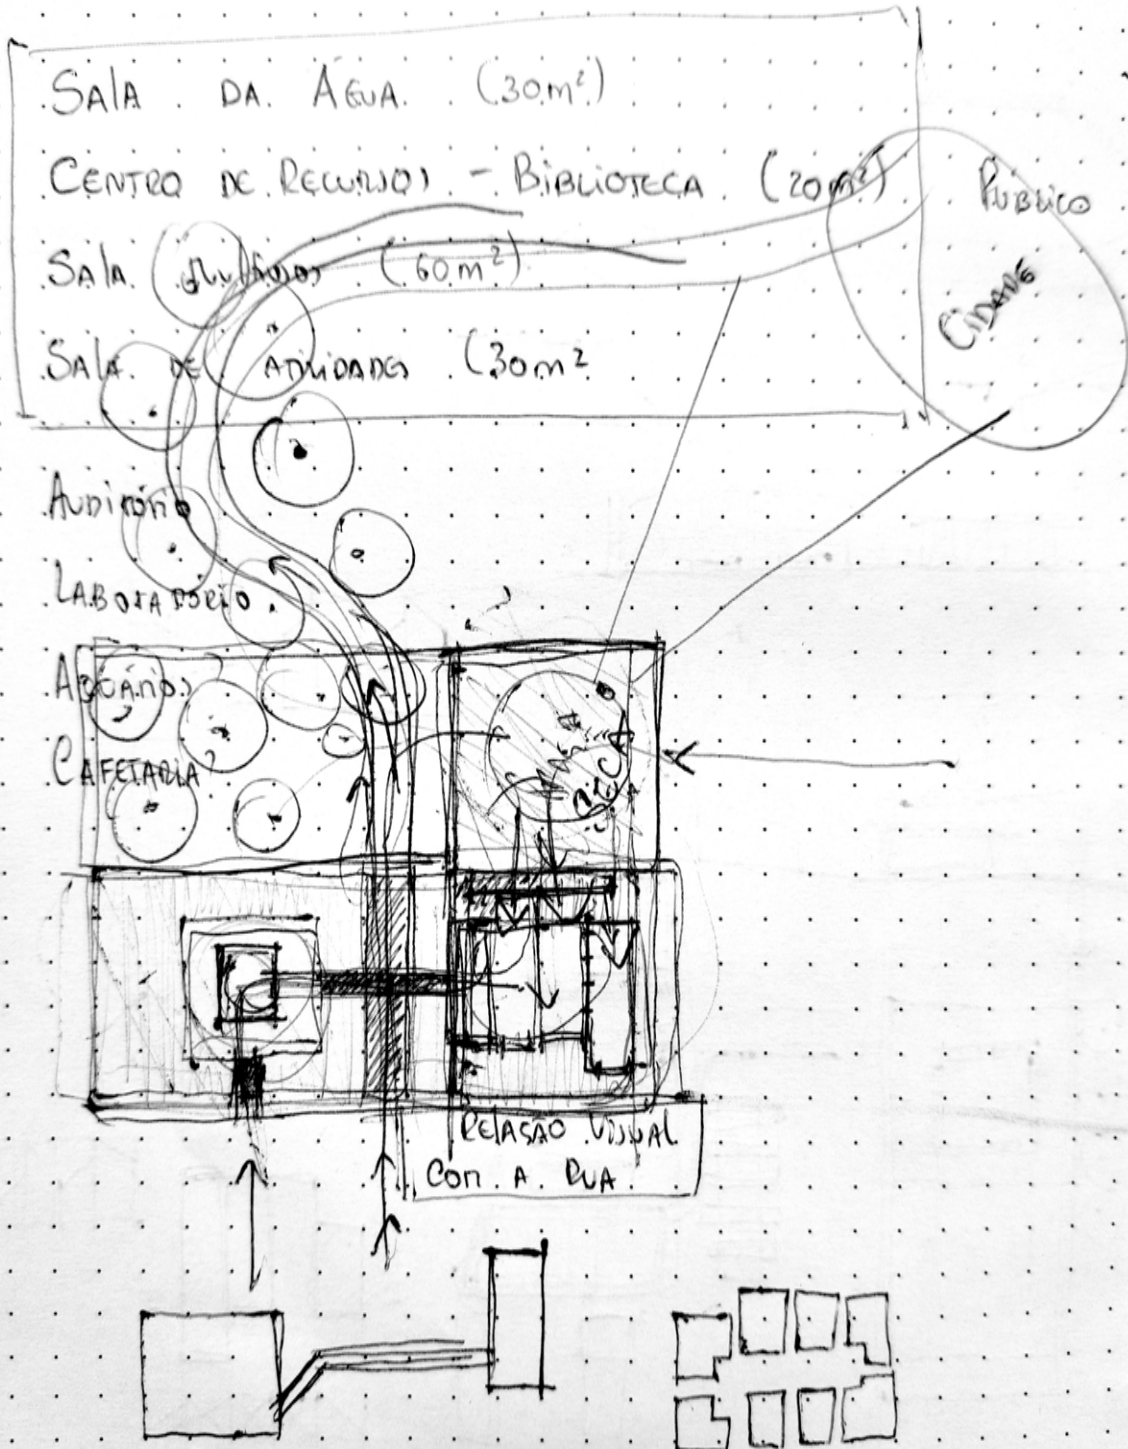 SALA DA ÁGUA (30m²)
CENTRO DE RECURSOS - BIBLIOTECA (20m²)
SALA (60m²)
SALA DE ATIVIDADES (30m²
PÚBLICO
CIDADE
AUDITÓRIO
LABORATÓRIO
AQUÁRIOS
CAFETARIA?
SECA
RELAÇÃO VISUAL
COM A RUA